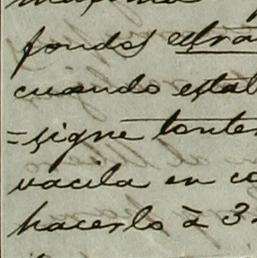 fondos estra
cuando estab
=signe tonter
vacila en co
hacerlo à 3